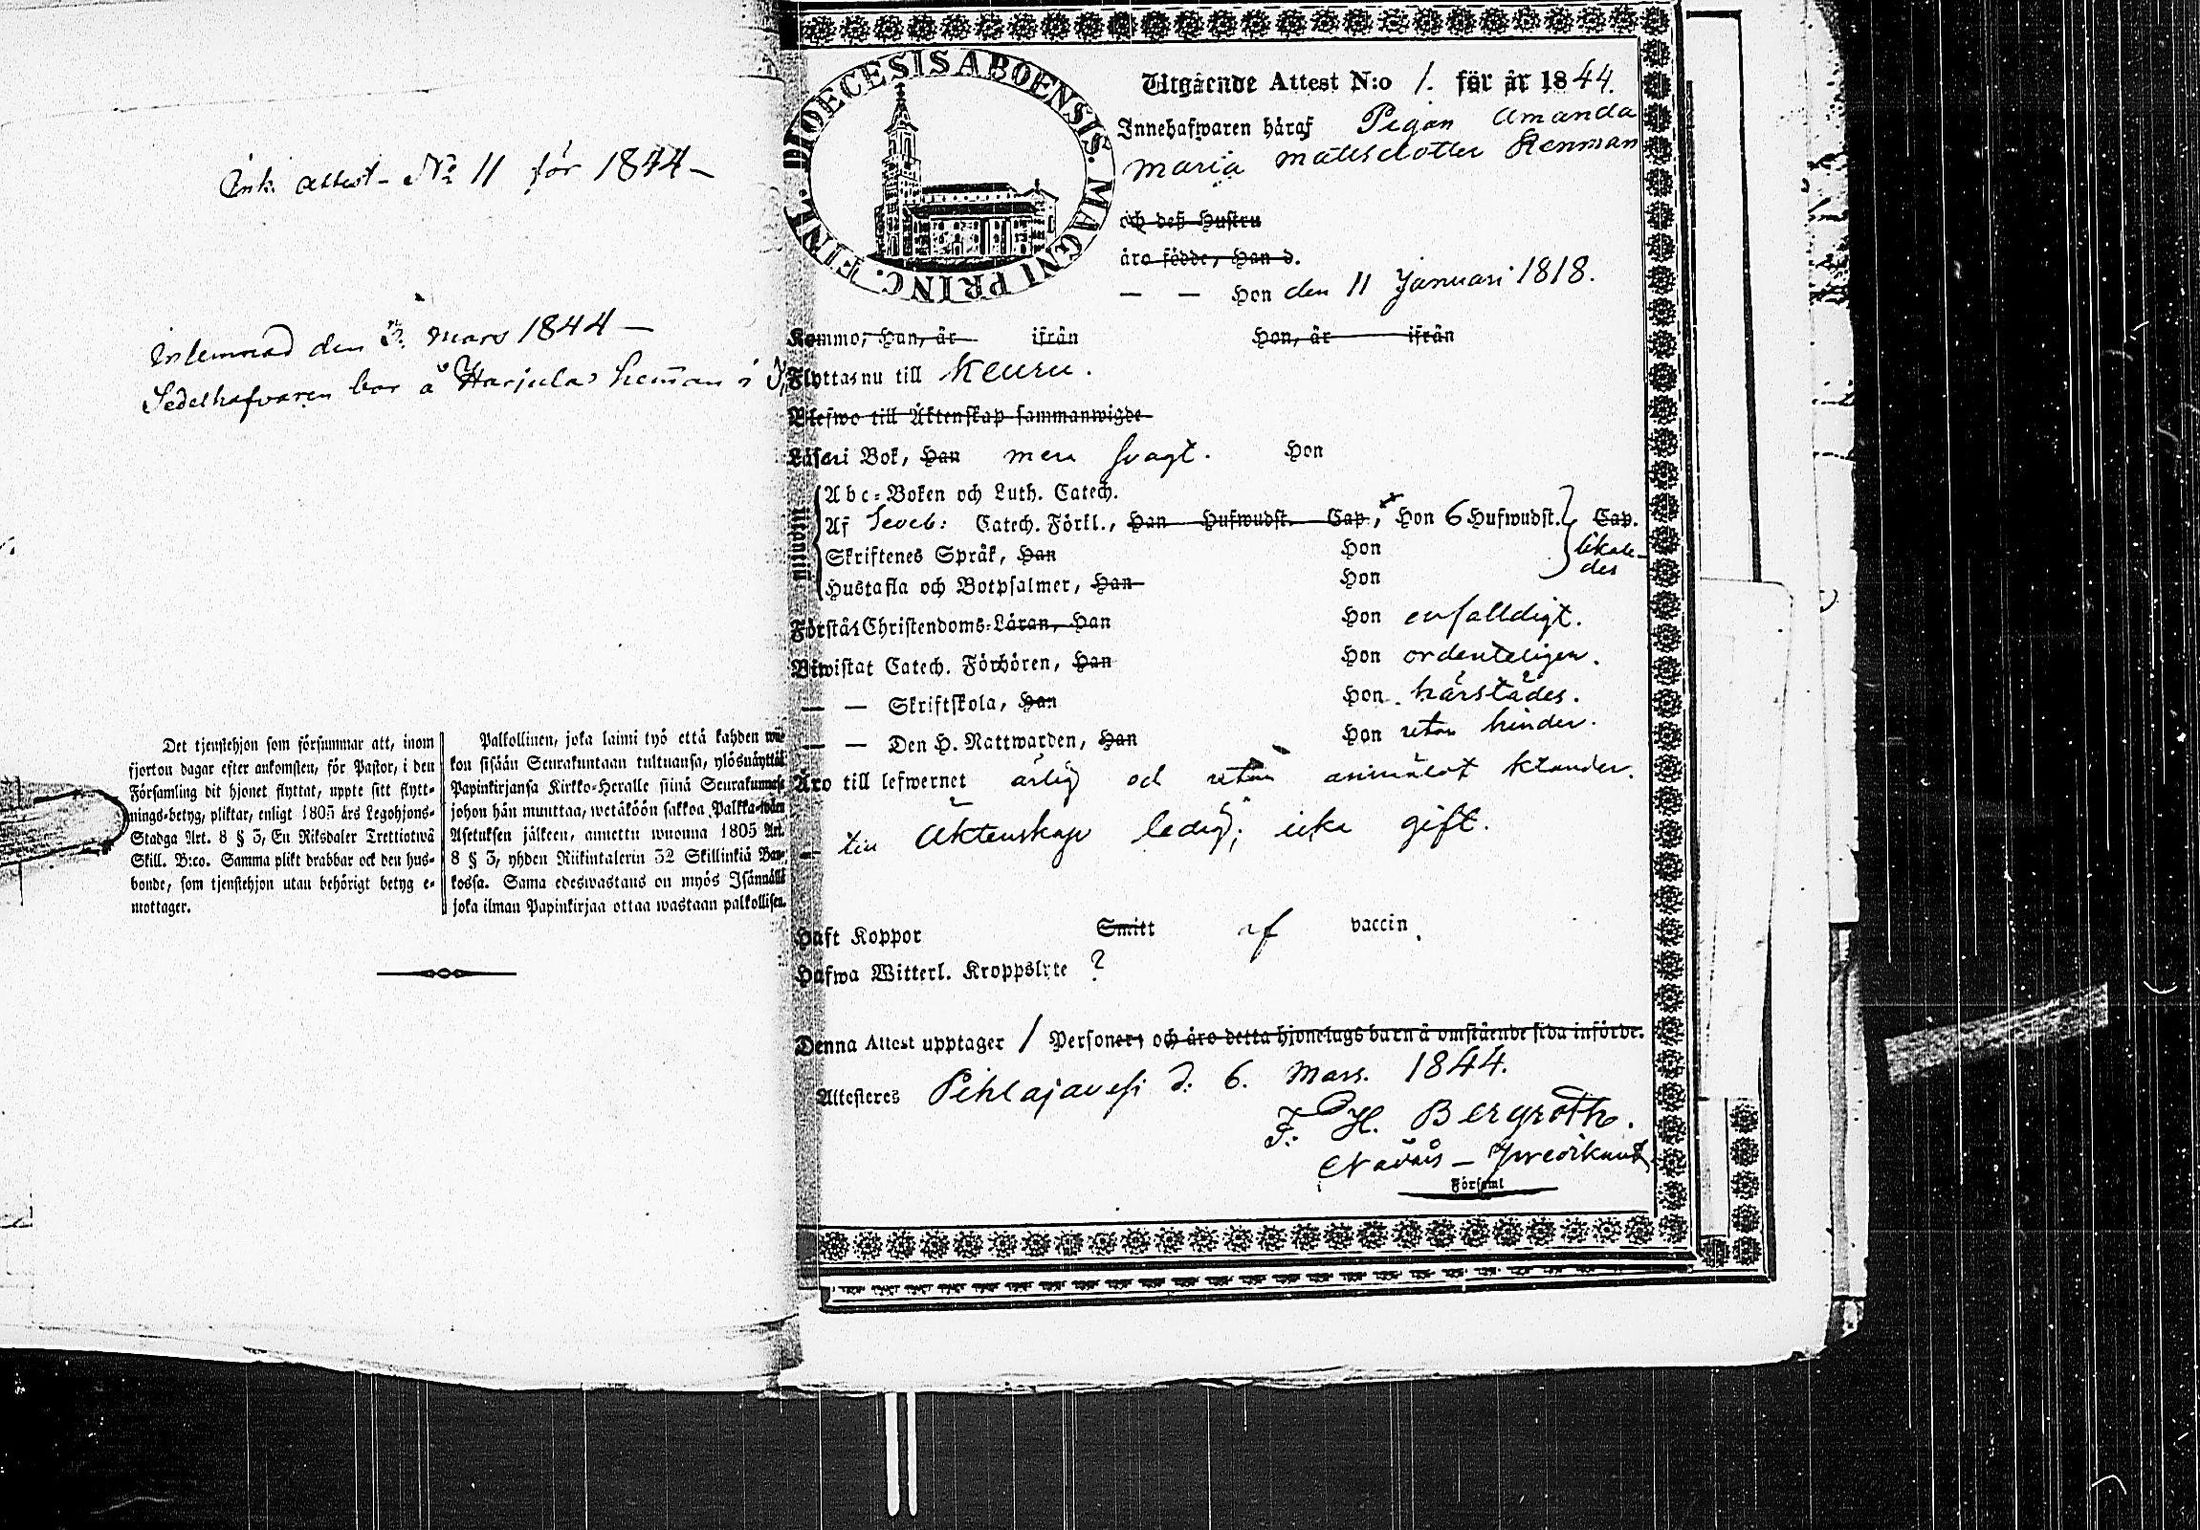 Ink. attest - No 11 för 1844 -
Inlemnad den 3. Mars 1844 -
Sedelhafvaren bor å Harjulas heman i
Det tjenstehjon som försummar att, inom
fjorton dagar efter ankomsten, för Pastor, i den
Församling dit hjonet flyttat, uppte sitt flytt=
nings-betyg, pliktar, enligt 1805 års Legohjons=
Stadga Art. 8 § 3, En Riksdaler Trettiotwå
Skill. B:co. Samma plikt drabbar ock den hus=
bonde, som tjenstehjon utan behörigt betyg e=
mottager.
Palkollinen, joka laimi lyö että kahden wii
kon sisään Seurakuntaan tultuansa, ylösnäyttää
Papinkirjansa Kirkko=Heralle siinä Seurakunnasa
johon hän muuttaa, wetäköön sakkoa Palkka=wäen
Asetuksen jälkeen, annettu wuonna 1805 Art.
8 § 3, yhden Riikintalerin 32 Skillinkiä Ban=
kossa. Sama edeswastaus on myös Isännällä
joka ilman Papinkirjaa ottaa wastaan palkollisen.
DIOECESIS ABOENSIS. MAGNI PRINC. FINL.
Utgående Attest N:o 1. för år 1844.
Innehafwaren häraf Pigan Amanda
Maria Mattsdotter Renman
och deß Hustru
äro födde, Han d.
— — Hon den 11 Januari 1818.
Komma, Han, är ifrån Hon, är ifrån
Flyttas nu till Keuru.
Blefwo till Äktenskap sammanwigde
Läser i Bok, Han men svagt. Hon
Abc=Boken och Luth. Catech.
Af Sveb: Catech. Förkl., Han Hufwudst. Cap, Hon 6 Hufwudst. Cap.
Skriftenes Språk, Han Hon likale-
Hustafla och Botpsalmer, Han Hon des
Förstår Christendoms=Läran, Han Hon enfalldigt.
Biwistat Catech. Förhören, Han Hon ordenteligen.
— — Skriftskola, Han Hon härstädes.
— — Den H. Nattwarden, Han Hon utan hinder.
Äro till lefwernet ärlig och utan anmäldt klander.
— till Äktenskap ledig; icke gift.
Haft Koppor Smitt af vaccin.
Hafwa Witterl. Kroppslyte ?
Denna Attest upptager 1 Personer, och äro detta hjonelags barn å omstående sida införde.
Attesteres Pihlajavesi d: 6. Mars. 1844.
F. H. Bergroth.
i Församl